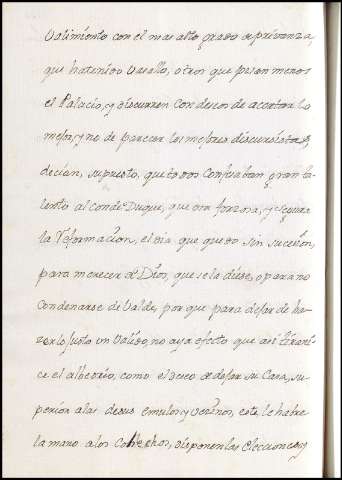 Valimiento con el mas alto grado de privanza,
que ha tenido Vasallo, otros que pisan menos
el Palacio, y discurren con deseo de acertar lo
mejor, y no de parecer los mejores discursistas,
decian, supuesto, que todos confesaban gran ta-
lento al Conde Duque, que era forzosa, y segura
la reformacion, el dia que quedó sin sucesion,
para merecer á Dios, que se la diese, o para no
condenarse de Valde, por que para dejar de ha-
zer lo justo un Valido, no ay afecto que asi tirani-
ce el albedrio, como el deseo de dejar su Casa, su-
perior a las de sus emulos y vezinos, este le habre
la mano a los Cohechos, disponen las elecciones, y